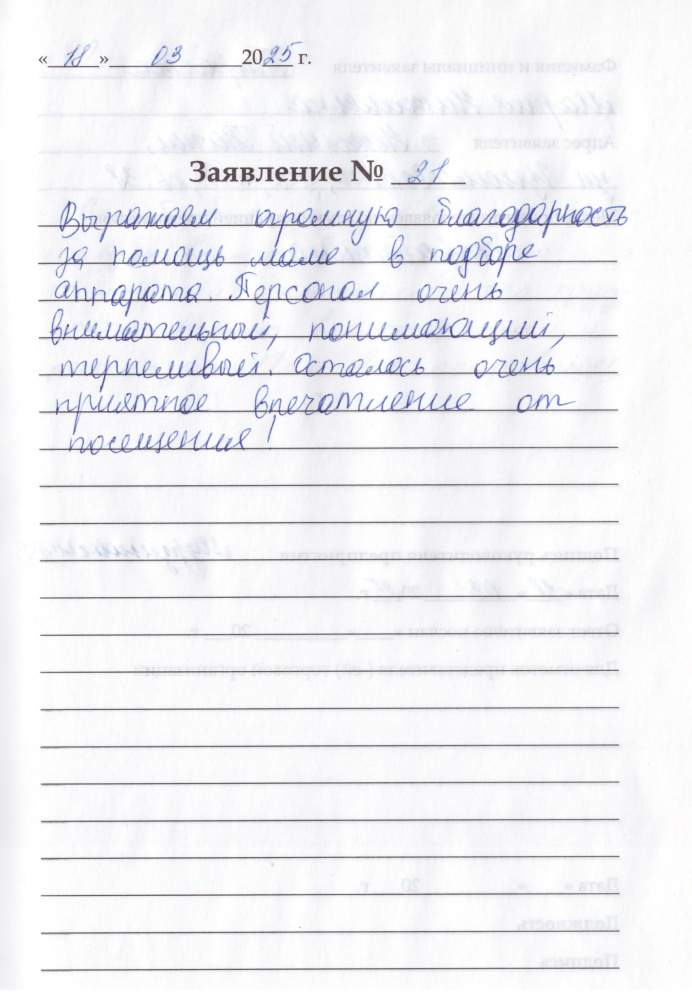 « 18 » 03 2025 г.
Заявление № 21
Выражаем огромную благодарность
за помощь маме в подборе
аппарата. Персонал очень
внимательный, понимающий,
терпеливый. Осталось очень
приятное впечатление от
посещения!